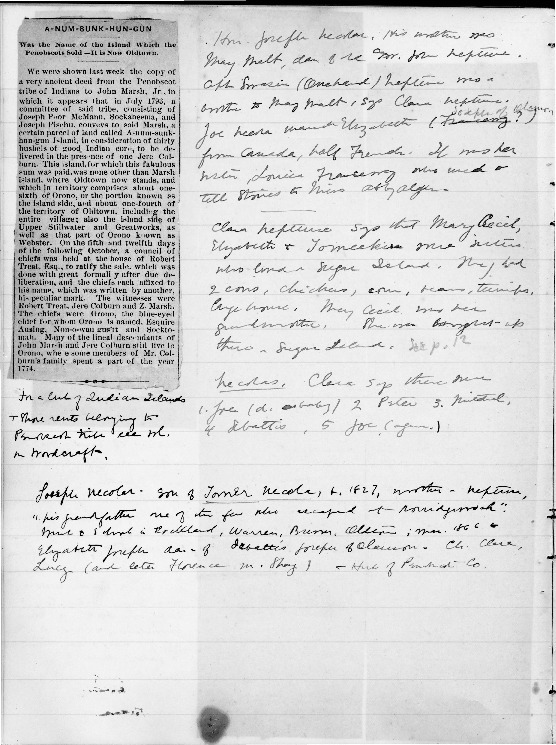 A-NUM-SUNK-HUN-GUN
Was the Name of the Island Which the
Penobscots Sold—It is Now Oldtown.
We were shown last week the copy of
a very ancient deed from the Penobscot
tribe of Indians to John Marsh, Jr., in
which it appears that in July 1795, a
committee of said tribe, consisting of
Joseph Poor McMann, Bockaswoa, and
Joseph Pischu, conveys to said Marsh, a
certain parcel of land called A-num-sunk-
hun-gun Island, in consideration of thirty
bushels of good Indian corn, to be de-
livered in the presence of one Jere Col-
burn. This island, for which this fabulous
sum was paid, was none other than Marsh
Island, where Oldtown now stands, and
which in territory comprises about one-
sixth of Orono, or the portion known as
the island side, and about one-fourth of
the territory of Oldtown, including the
entire village; also the island side of
Upper Stillwater and Greatworks, as
well as that part of Orono known as
Webster. On the fifth and twelfth days
of the following October, a council of
chiefs was held at the house of Robert
Treat, Esq., to ratify the sale, which was
done with great formality after due de-
liberation, and the chiefs each affixed to
his name, which was written by another,
his peculiar mark. The witnesses were
Robert Treat, Jere Colburn and Z. Marsh.
The chiefs were Orono, the blue-eyed
chief for whom Orono is named, Esquire
Many of the lineal descendants of
John Marsh and Jere Colburn still live in
Orono, where some members of Mr. Col-
burn's family spent a part of the year
1774.
In a list of Indian Islands
& those rents belonging to
Penobscot tribe see vol.
on Woodcraft.
Hon. Joseph Necolar. His mother was
Mary Malt, dau of Dr. John Neptune.
Capt Swasin (Onehand) Neptune was a
brother to Mary Malt, sys Clara Neptune.
Joe Necola married Elizabeth (Francway) Joseph of Olamon
from Canada, half French. It was her
sister Louise Francway who used to
tell stories to Miss Abbyalger.
Clara Neptune sys that Mary Cecil,
Elizabeth & were sisters
who lived on Sugar Island. They had
2 cows, chickens, corn, beans, turnips,
large house. Mary Cecil was her
grandmother. She was brought up
there on Sugar Island. See p. 12
Necolas. Clara sys there were
1. Joe (d. a baby) 2 Peter 3. Mitchel,
4 Sbattis, 5 Joe (again.)
Joseph Necolar. Son of Tomer Necola, b. 1827, mother - Neptune,
"his grandfather one of the few who escaped at Norridgewock".
in Rockland, Warren, Brewer, Oldtown; mar. 1866 to
Elizabeth Joseph dau. of Sebattis Joseph of Olamon. Ch. Clara,
Lucy (and later Florence m. Shay) - Hist of Penobscot Co.